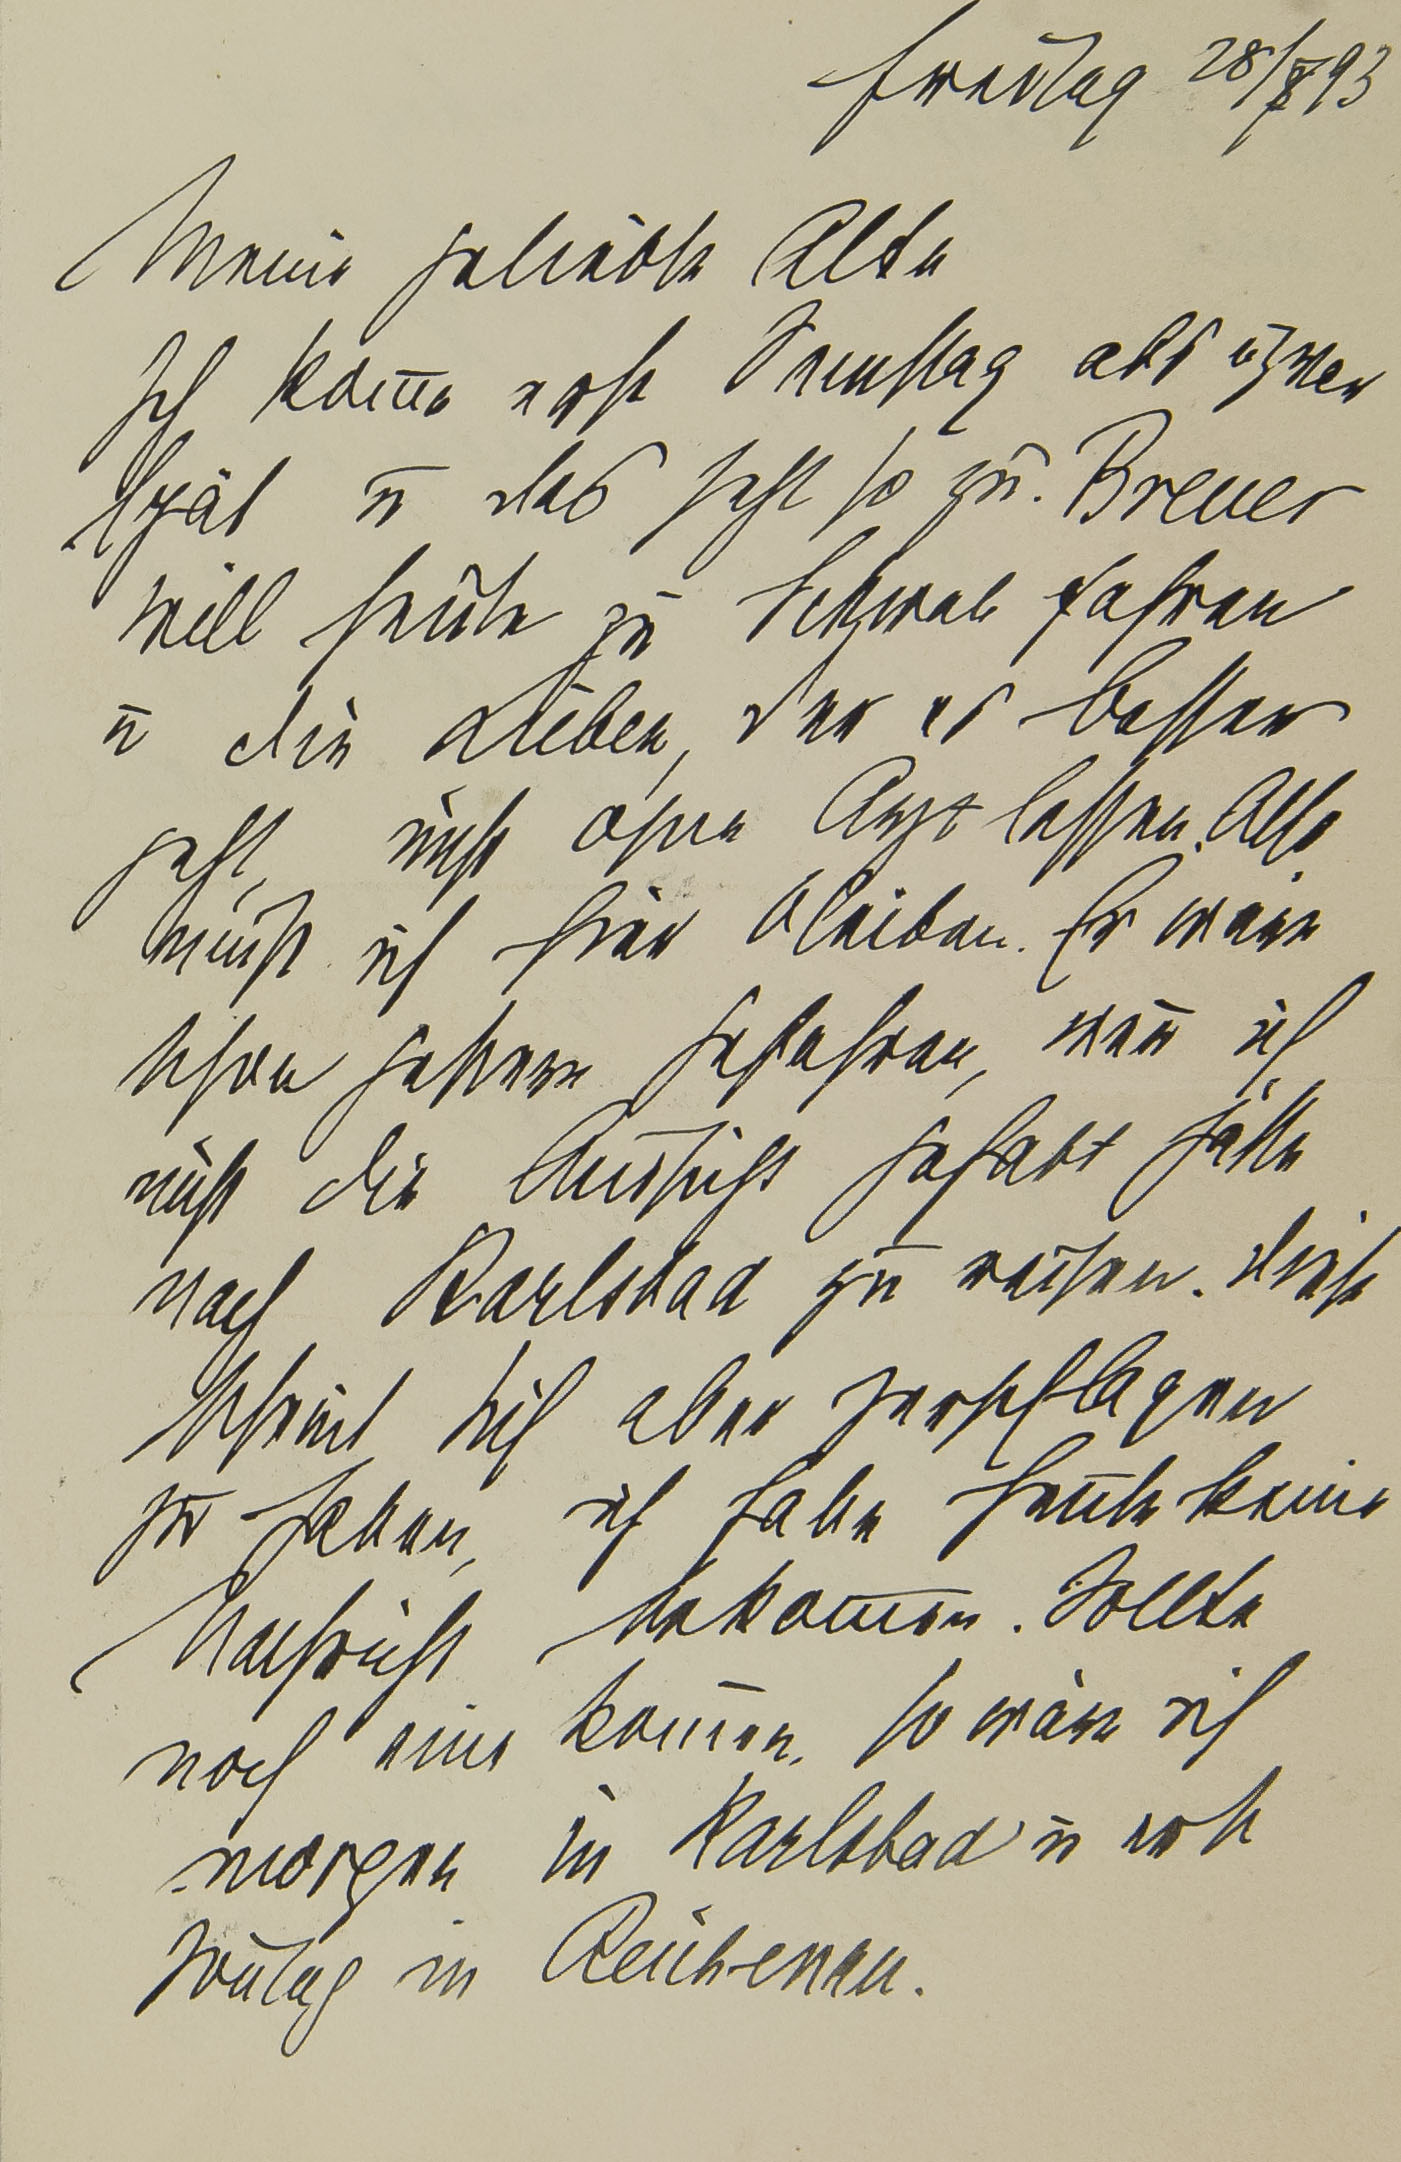 Freitag 28/7 93
Meine geliebte Alte
Ich kom̅e erst Samstag abds uzw
spät u das geht so zu. Breuer
will heute zu Schwab fahren
u die Lieben, der es besser
geht, nicht ohne Arzt lassen. Also
muß ich hier bleiben. Er wäre
schon gestern gefahren, wen̅ ich
nicht die Aussicht gehabt hätte
nach Karlsbad zu reisen. Diese
scheint sich aber zerschlagen
zu haben, ich habe heute keine
Nachricht bekom̅en. Sollte
noch eine kom̅en, so wäre ich
morgen in Karlsbad u erst
Son̅tag in Reichenau.